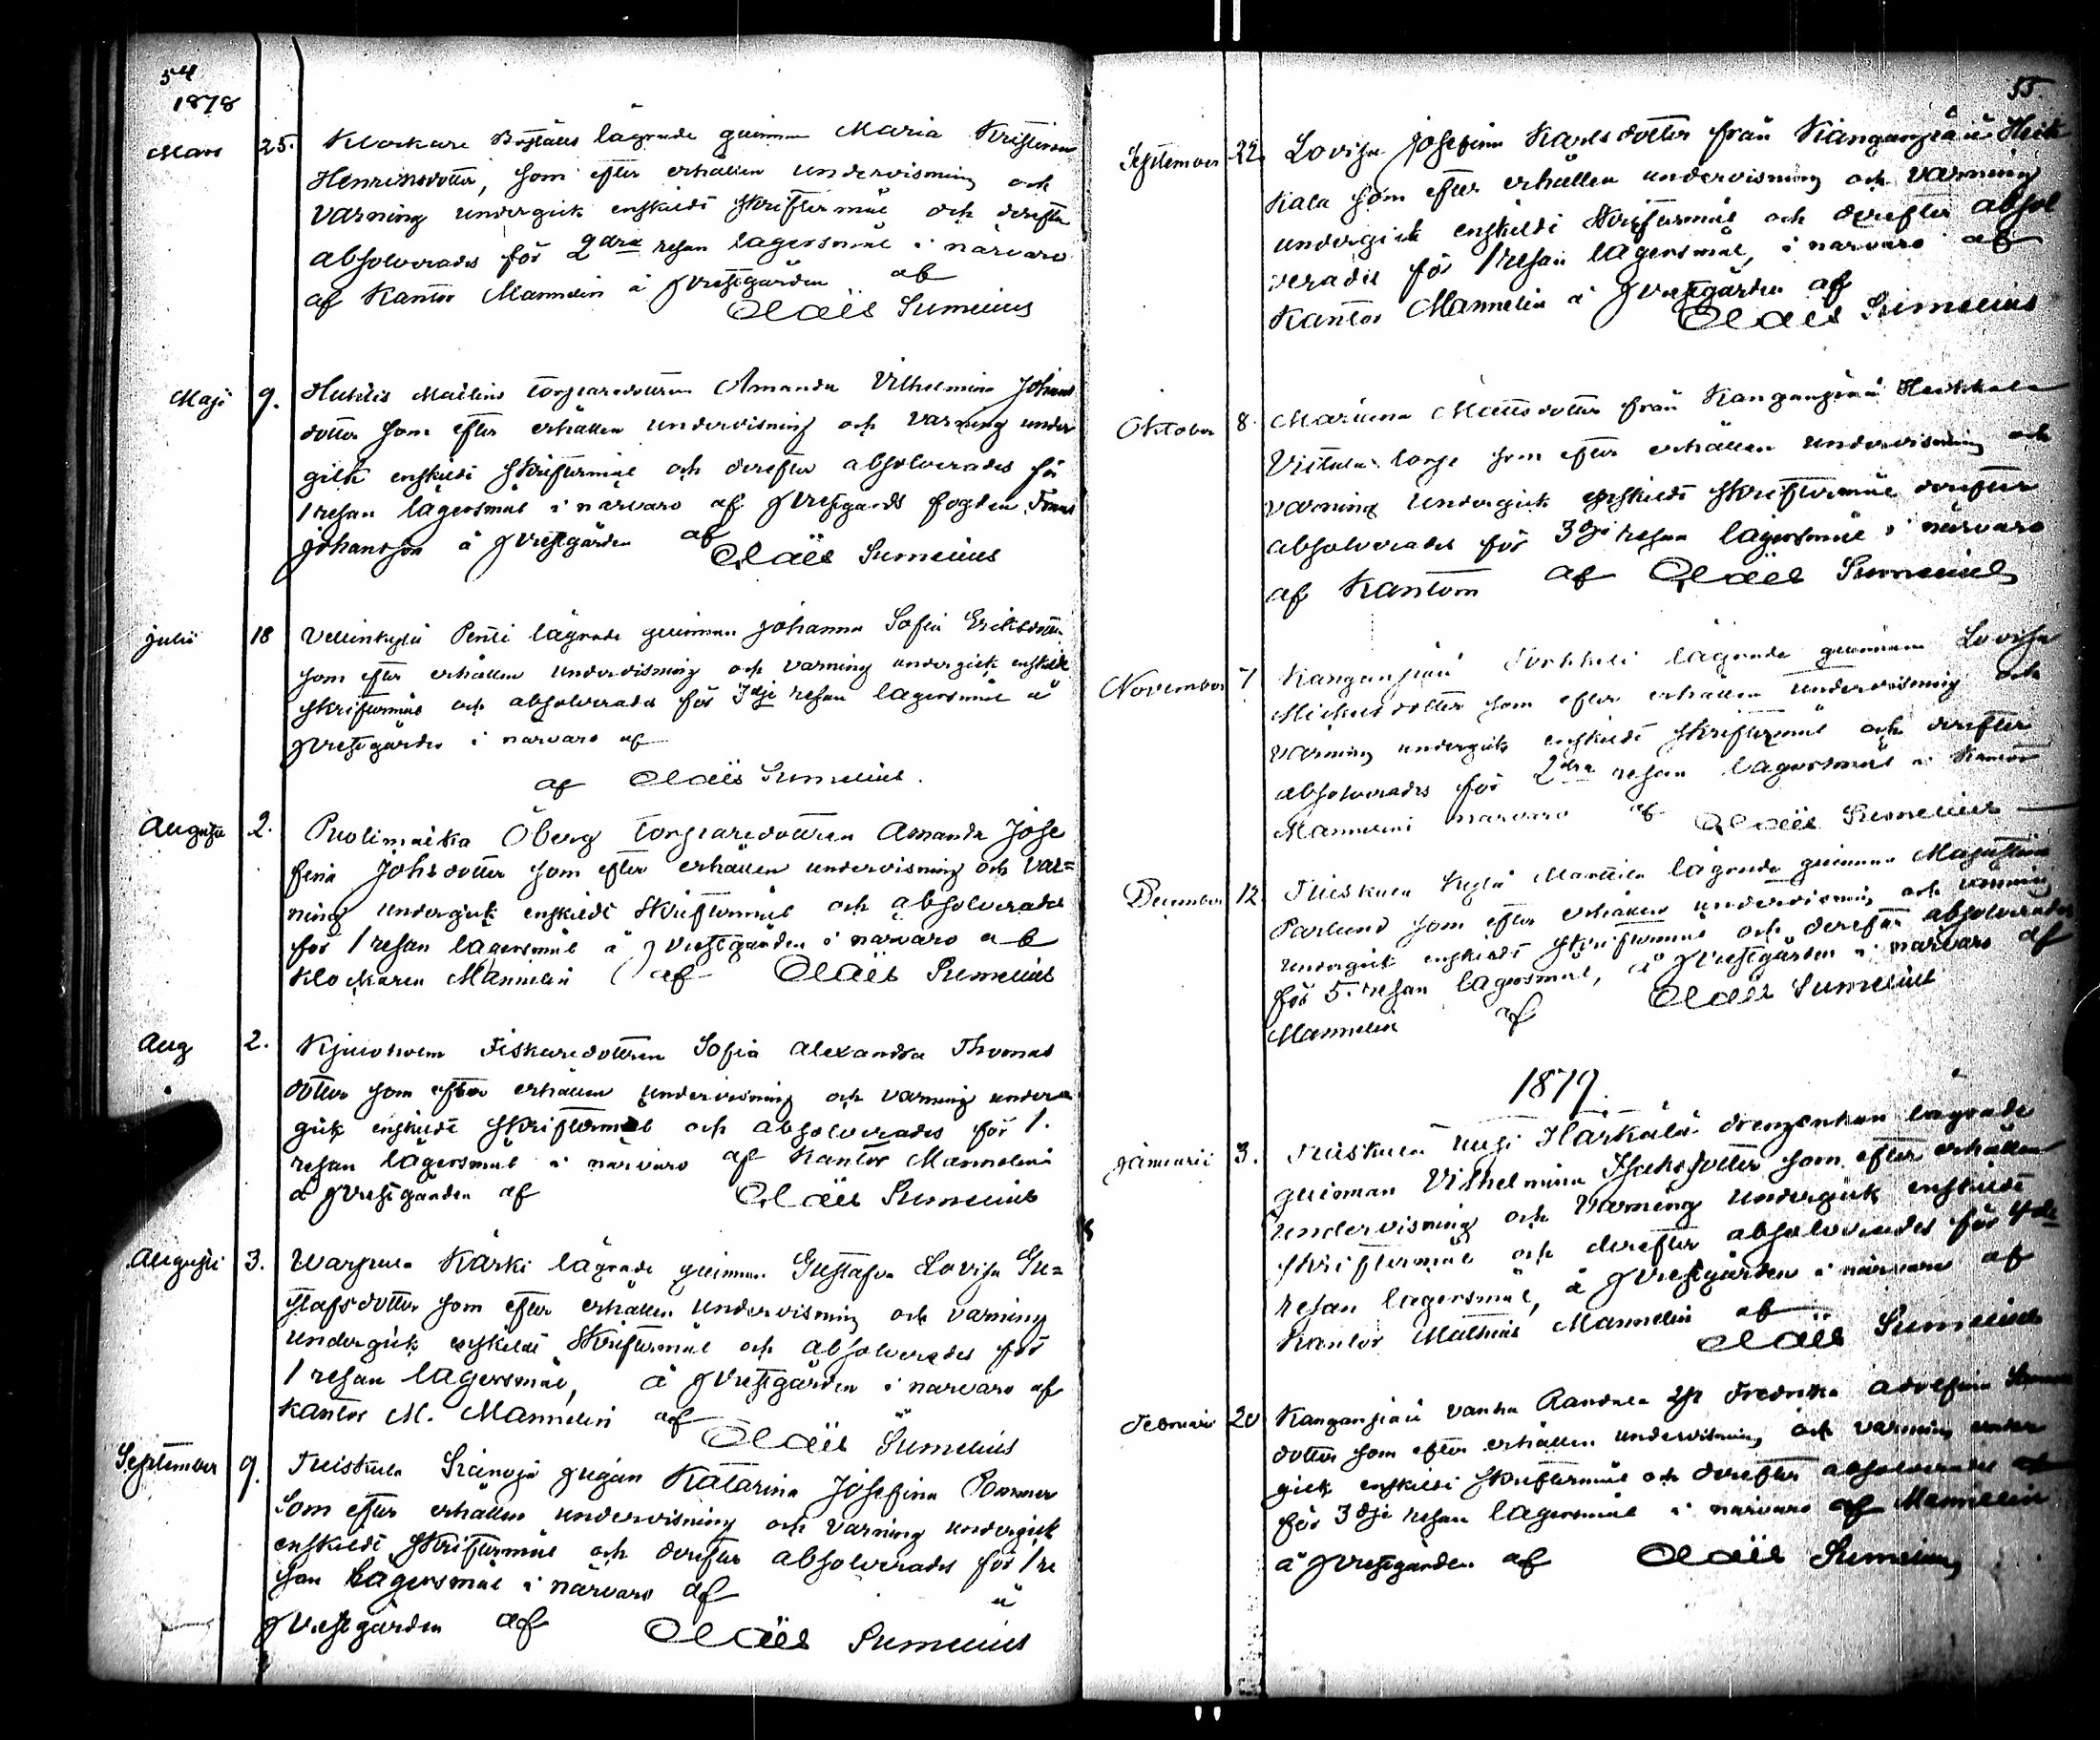 54
1878
Mars 25. Klockare Boställes lägrade quinnan Maria Kristina
Henriksdotter, som efter erhållen undervisning och
varning undergick enskildt skriftermål och derefter
absolverades för 2dra resan lägersmål i närvaro
af Kantor Mannelin å prestgården af
Claës Sumelius
Maji 9. torparedottren Amanda Vilhelmina Johans
dotter som efter erhållen undervisning och varning under
gick enskildt skriftermål och derefter absolverades för
1 resan lägersmål i närvaro af prestgårds fogden Frans
Johansson å prestgården af
Claës Sumelius
Julii 18 Penti lägrade quinnan Johanna Sofia Eriksdotter
som efter erhållen undervisning och varning undergick enskildt
skriftermål och absolverades för 3dje resan lägersmål å
prestgården i närvaro af
af Claës Sumelius.
Augusti 2. Puolimatka Öberg torparedottren Amanda Jose
fina Johsdotter som efter erhållen undervisning och var=
ning undergick enskildt skriftermål och absolverades
för 1 resan lägersmål å prestgården i närvaro af
Klockaren Mannelin af Claës Sumelius
Aug 2. Fiskaredottren Sofia Alexandra Thomas
dotter som efter erhållen undervisning och varning under
gick enskildt skriftermål och absolverades för 1.
resan lägersmål i närvaro af Kantor Mannelin
å prestgården af Claës Sumelius
Augusti 3. Kärki lägrade quinnan Gustafva Lovisa Gu=
stafsdotter som efter erhållen undervisning och varning
undergick enskildt skriftermål och absolverades för
1 resan lägersmål, å prestgården i närvaro af
Kantor M. Mannelin af
Claës Sumelius
September 9. pigan Katarina Josefina
som efter erhållen undervisning och varning undergick
enskildt skriftermål och derefter absolverades för 1 re
san lägersmål i närvaro af å
prestgården af Claës Sumelius
55.
September 22. Lovisa Josefina Karlsdotter från Kanganpää Heik
kala som efter erhållen undervisning och varning
undergick enskildt skriftermål och derefter absol
verades för 1 resan lägersmål, i närvaro af
Kantor Mannelin å prestgården af
Claës Sumelius
Oktober 8. Mariana Mattsdotter från Kanganpää Heikkala
torp som efter erhållen undervisning och
varning undergick enskildt skriftermål derefter
absolverades för 3dje resan lägersmål i närvaro
af Kantorn af Claës Sumelius
November 7 Kanganpää lägrade quinnan Lovisa
Mickelsdotter som efter erhållen undervisning och
varning undergick enskildt skriftermål och derefter
absolverades för 2dra resan lägersmål i Kantor
Mannelins närvaro af Claës Sumelius
December 12. Kylä Marttila lägrade quinnan Maja Stina
Parlund som efter erhållen undervisning och varning
undergick enskildt skriftermål och derefter absolverades
för 5. resan lägersmål, å prestgården i närvaro af
Mannelin af Claës Sumelius
1879.
Januarii 3. Uusi Härkälä drengenkan lägrade
quinnan Vilhelmina som efter erhållen
undervisning och varning undergick enskildt
skriftermål och derefter absolverades för 4de
resan lägersmål, å prestgården i närvaro af
Kantor Mathias Mannelin af
Claës Sumelius
Februari 20 Kanganpää vanha Fredrika Adolfina
dotter som efter erhållen undervisning och varning under
gick enskildt skriftermål och derefter absolverades
för 3dje resan lägersmål i närvaro af Mannelin
å prestgården af Claës Sumelius